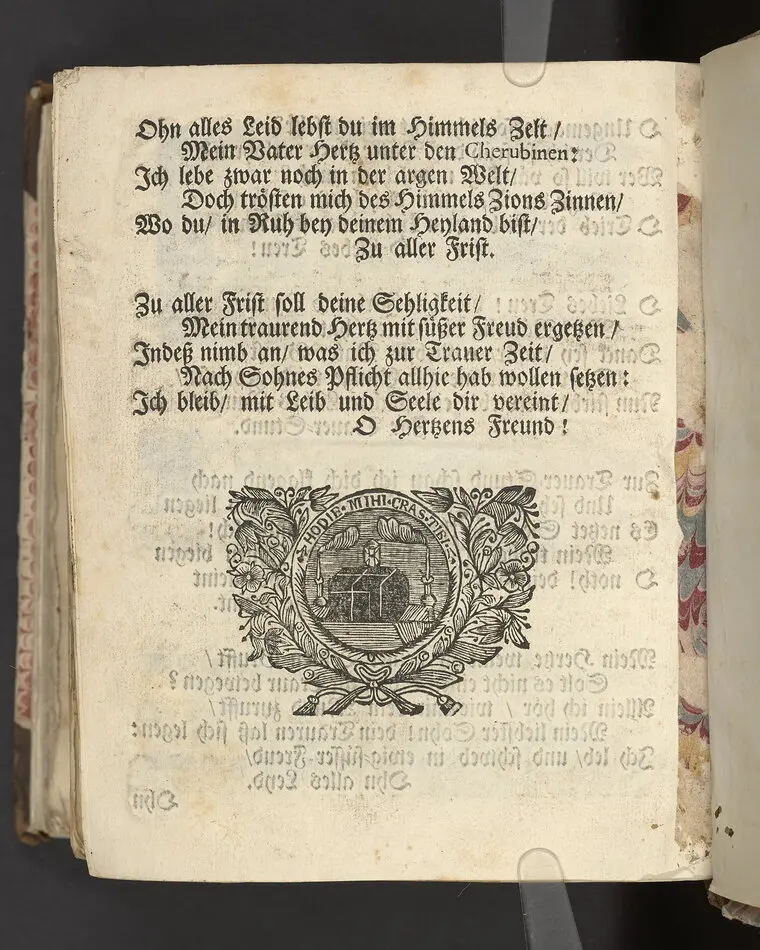 Ohn alles Leid lebst du im Himmels Zelt /
Mein Vater Hertz unter den Cherubinen:
Ich lebe zwar noch in der argen Welt/
Doch trösten mich des Himmels Zions Zinnen/
Wo du/ in Ruh bey deinem Heyland bist/
Zu aller Frist.
Zu aller Frist soll deine Sehligkeit/
Mein traurend Hertz mit süßer Freud ergetzen /
Indeß nimb an/ was ich zur Trauer Zeit/
Nach Sohnes Pflicht allhie hab wollen setzen:
Ich bleib/ mit Leib und Seele dir vereint/
O Hertzens Freund!
HODIE·MIHI·CRAS·TIBI